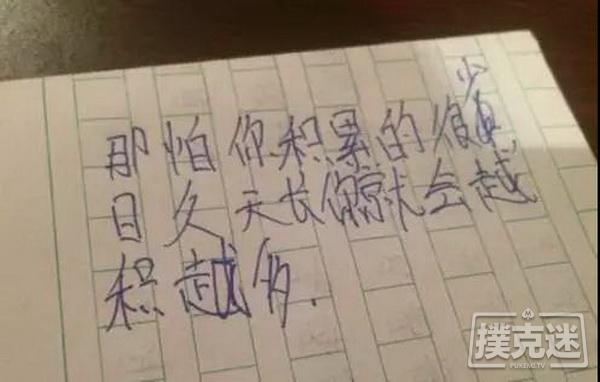 那怕你积累的很少点
日久天长你就会越
积越多.
撲克迷
PUKEMI.TV